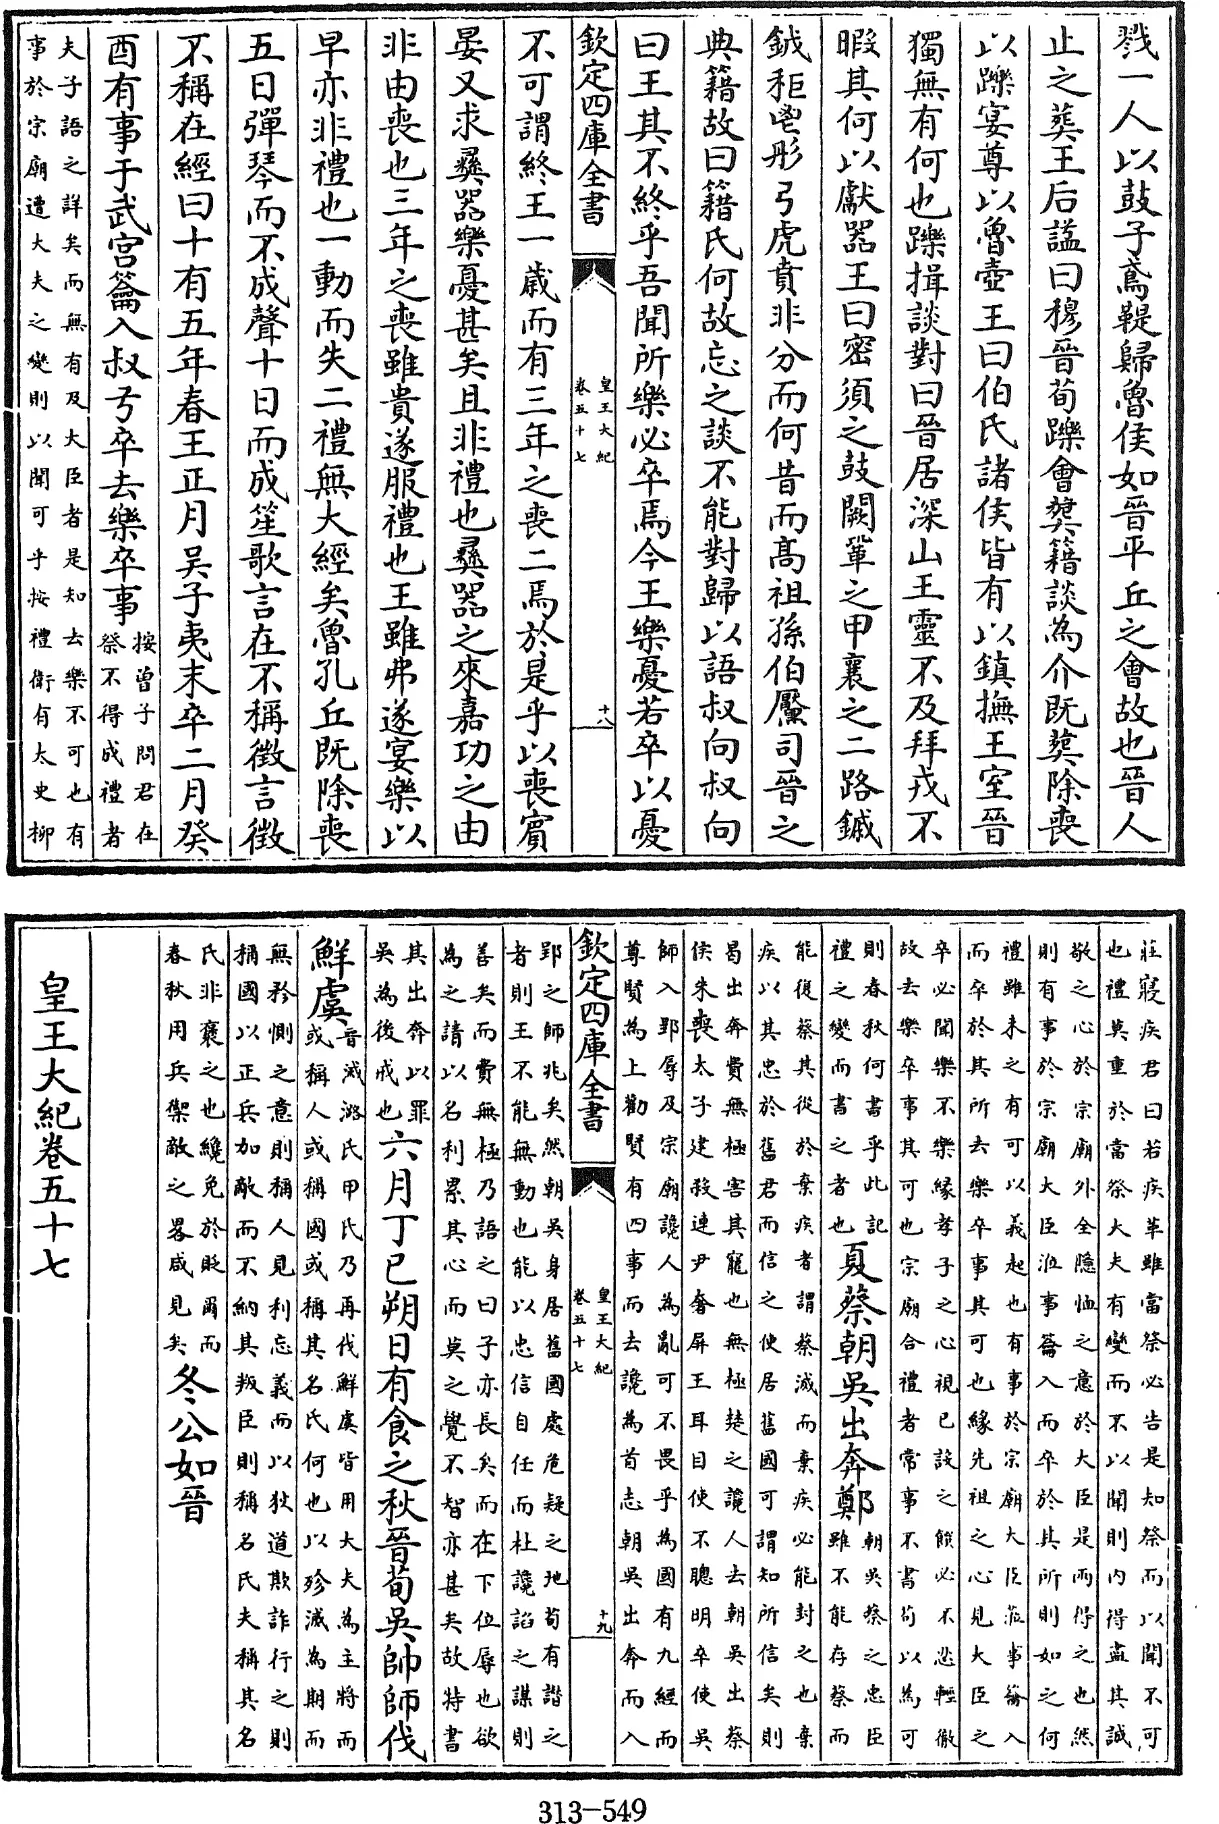 戮一人以鼓子鳶鞮歸魯侯如晉平丘之會故也晉人
止之葬王后謚曰穆晉荀躒會葬籍談為介既葬除喪
以躒宴尊以魯壺王曰伯氏諸侯皆有以鎮撫王室晉
獨無有何也躒揖談對曰晉居深山王靈不及拜戎不
暇其何以獻器王曰密須之鼓闕鞏之甲襄之二路鏚
鉞秬鬯彤弓虎賁非分而何昔而高祖孫伯黶司晉之
典籍故曰籍氏何故忘之談不能對歸以語叔向叔向
曰王其不終乎吾聞所樂必卒焉今王樂憂若卒以憂
欽定四庫全書
皇王大紀
卷五十七
十八
不可謂終王一歲而有三年之喪二焉於是乎以喪賓
晏又求彛器樂憂甚矣且非禮也彛器之來嘉功之由
非由喪也三年之喪雖貴遂服禮也王雖弗遂宴樂以
早亦非禮也一動而失二禮無大經矣魯孔丘既除喪
五日彈琴而不成聲十日而成笙歌言在不稱徵言徵
不稱在經曰十有五年春王正月吳子夷末卒二月癸
酉有事于武宮籥入叔弓卒去樂卒事
按曾子問君在
祭不得成禮者
夫子語之詳矣而無有及大臣者是知去樂不可也有
事於宗廟遭大夫之變則以聞可乎按禮衛有太史柳
莊寢疾君曰若疾革雖當祭必告是知祭而以聞不可
也禮莫重於當祭大夫有變而不以聞則内得盡其誠
敬之心於宗廟外全隱恤之意於大臣是兩得之也然
則有事於宗廟大臣涖事籥入而卒於其所則如之何
禮雖未之有可以義起也有事於宗廟大臣涖事籥入
而卒於其所去樂卒事其可也緣先祖之心見大臣之
卒必聞樂不樂緣孝子之心視已設之饌必不忍輕徹
故去樂卒事其可也宗廟合禮者常事不書茍以為可
則春秋何書乎此記
禮之變而書之者也
夏蔡朝吳出奔鄭
朝吳蔡之忠臣
雖不能存蔡而
能復蔡其從於棄疾者謂蔡滅而棄疾必能封之也棄
疾以其忠於舊君而信之使居舊國可謂知所信矣則
曷出奔費無極害其寵也無極楚之讒人去朝吳出蔡
侯朱喪太子建殺連尹奢屏王耳目使不聰明卒使吳
師入郢辱及宗廟讒人為亂可不畏乎為國有九經而
尊賢為上勸賢有四事而去讒為首志朝吳出奔而入
欽定四庫全書
皇王大紀
卷五十七
十九
郢之師兆矣然朝吳身居舊國處危疑之地茍有譖之
者則王不能無動也能以忠信自任而杜讒諂之謀則
善矣而費無極乃語之曰子亦長矣而在下位辱也欲
為之請以名利累其心而莫之覺不智亦甚矣故特書
其出奔以罪
吳為後戒也
六月丁巳朔日有食之秋晉荀吳帥師伐
鮮虞
晉滅潞氏甲氏乃再伐鮮虞皆用大夫為主將而
或稱人或稱國或稱其名氏何也以殄滅為期而
無矜惻之意則稱人見利忘義而以狄道欺詐行之則
稱國以正兵加敵而不納其叛臣則稱名氏夫稱其名
氏非褒之也纔免於貶爾而
春秋用兵禦敵之畧咸見矣
冬公如晉
皇王大紀卷五十七
313-549